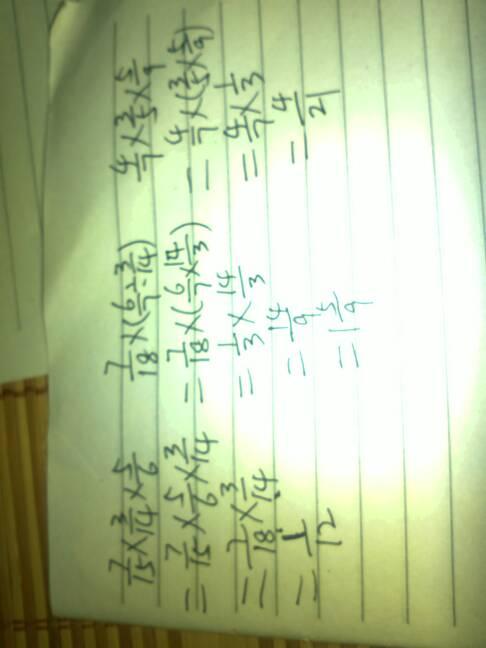 7/15 × 3/14 × 5/6
= 7/15 × 5/6 × 3/14
= 7/18 × 3/14
= 1/12
7/18 × (6/7 ÷ 3/14)
= 7/18 × (6/7 × 14/3)
= 1/3 × 14/3
= 14/9
= 1 5/9
4/7 × 3/5 × 5/9
= 4/7 × (3/5 × 5/9)
= 4/7 × 1/3
= 4/21